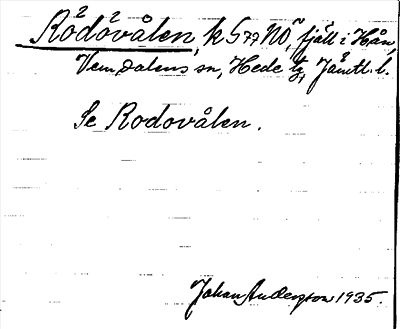 Rödovålen, k 577 NO, fjäll i Hån,
Vemdalens sn, Hede tg, Jämtl. l.
Se Rodovålen.
Johan Anderzon 1935.